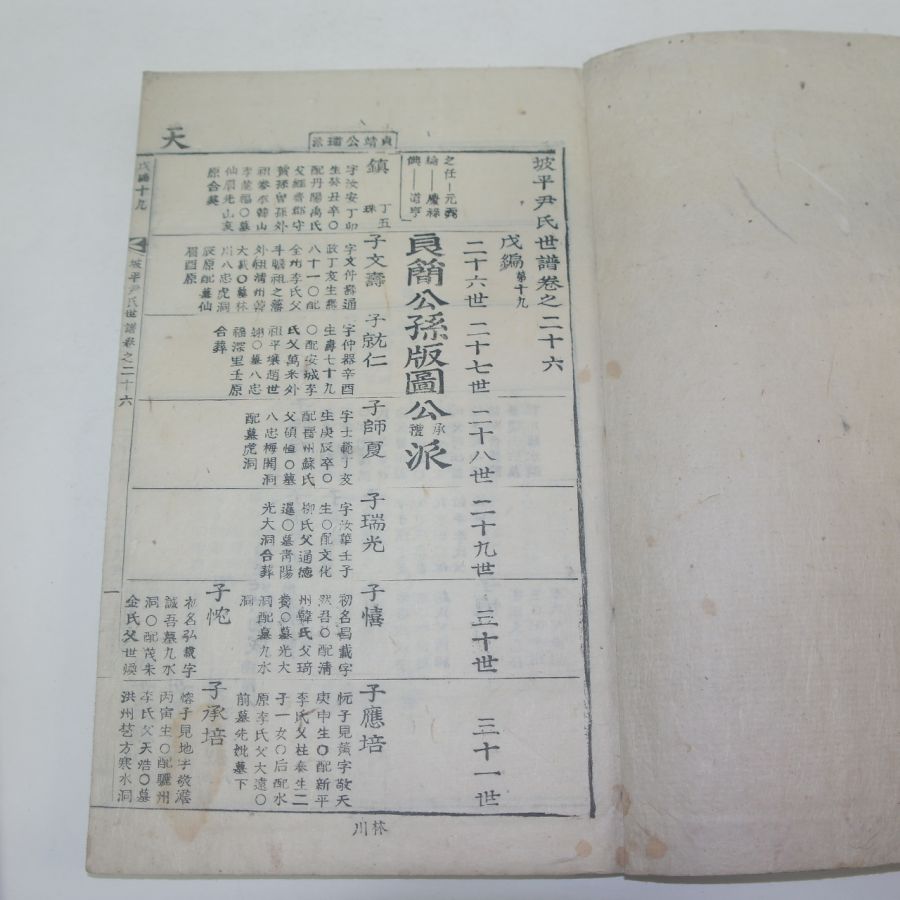 天
貞靖公璹派
坡平尹氏世譜卷之二十六
戊編 第十九
二十六世 二十七世 二十八世 二十九世 三十世 三十一世
良簡公孫版圖公承禮派
之任―元
鎮
字汝安丁卯
生癸丑卒○
配丹陽禹氏
父經齋郡守
曾孫外
仙眉光山亥
原合葬
子文壽
字文仲壽通
政丁亥生壽
八十一○配
全州李氏父
川八忠虎洞
辰原配墓仙
眉酉原
子就仁
字仲器辛酉
生壽七十九
○配安城李
氏父萬來外
祖平壤趙世
翊○墓八忠
福深里壬原
合葬
子師夏
字士範丁亥
生庚辰卒○
配晋州蘇氏
父碩恒○墓
八忠梅閑洞
配墓虎洞
子瑞光
字汝華壬子
生○配文化
柳氏父通德
暹○墓靑陽
光大洞合葬
子憘
初名昌載字
然吾○配淸
州韓氏父琦
養○墓光大
洞配墓九水
洞
子忱
初名弘載字
誠吾墓九水
洞○配茂朱
金氏父世煥
子應培
忨子見黃字敬天
庚申生○配新平
李氏父柱泰生二
子一女○后配水
原李氏父大遠○
前墓先妣墓下
子承培
愹子見地字敬湛
丙寅生○配驪州
李氏父天浩○墓
洪州芚方寒水洞
戊編十九
坡平尹氏世譜卷之二十六
一
林川